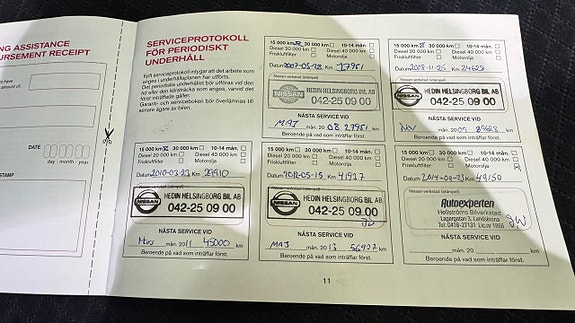 NG ASSISTANCE
URSEMENT RECEIPT
DATE
day month year
STAMP
SERVICEPROTOKOLL
FÖR PERIODISKT
UNDERHÅLL
Fyll i serviceprotokollet
Garanti- och serviceboken bör överlämnas till
senare ägare av bilen.
15 000 km 30 000 km 10-14 mån.
Diesel 20 000 km Diesel 40 000 km
Friskluftfilter Motorolja
Datum 2007-05-22 Km 17951
Nissan-verkstad (stämpel)
NISSAN HEDIN HELSINGBORG BIL AB
042-25 09 00
NÄSTA SERVICE VID
MAJ mån. 20 08 27951 km
Beroende på vad som inträffar först.
15 000 km 30 000 km 10-14 mån.
Diesel 20 000 km Diesel 40 000 km
Friskluftfilter Motorolja
Datum 2008-11-25 Km 24623
Nissan-verkstad (stämpel)
NISSAN HEDIN HELSINGBORG BIL AB
042-25 09 00
NÄSTA SERVICE VID
Nov mån. 20 09 km
Beroende på vad som inträffar först.
15 000 km 30 000 km 10-14 mån.
Diesel 20 000 km Diesel 40 000 km
Friskluftfilter Motorolja
Datum 2010-03-23 Km
NISSAN HEDIN HELSINGBORG BIL AB
042-25 09 00
NÄSTA SERVICE VID
Mars mån. 20 11 45000 km
Beroende på vad som inträffar först.
15 000 km 30 000 km 10-14 mån.
Diesel 20 000 km Diesel 40 000 km
Friskluftfilter Motorolja
Datum 2012-05-15 Km 41927
Nissan-verkstad (stämpel)
NISSAN HEDIN HELSINGBORG BIL AB
042-25 09 00
NÄSTA SERVICE VID
MAJ mån. 20 13 56927 km
Beroende på vad som inträffar först.
15 000 km 30 000 km 10-14 mån.
Diesel 20 000 km Diesel 40 000 km
Friskluftfilter Motorolja
Datum 2014-09-23 Km 49150
Nissan-verkstad (stämpel)
Autoexperten
Hellströms Bilverkstad
Lagergatan 3, Landskrona
NÄSTA SERVICE VID
mån. 20 km
Beroende på vad som inträffar först.
11